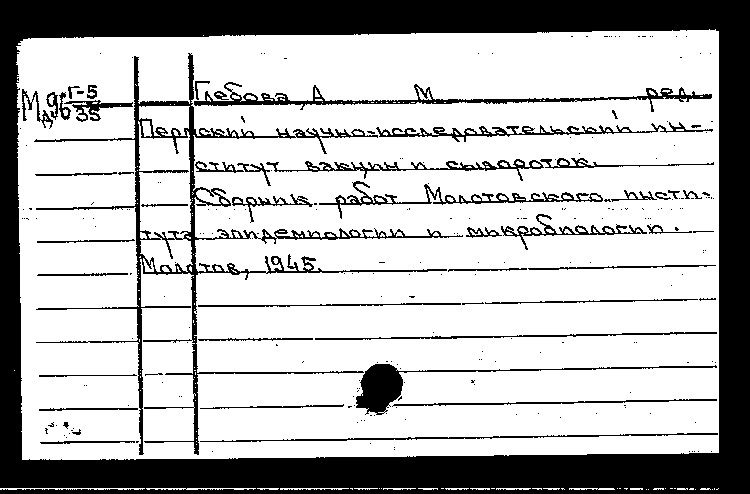 Глебова, А М ред.
Г-5
35
Пермский научно-исследовательский ин-
ститут вакцин и сывороток.
Сборник работ Молотовского инсти-
тута эпидемиологии и микробиологии.
Молотов, 1945.